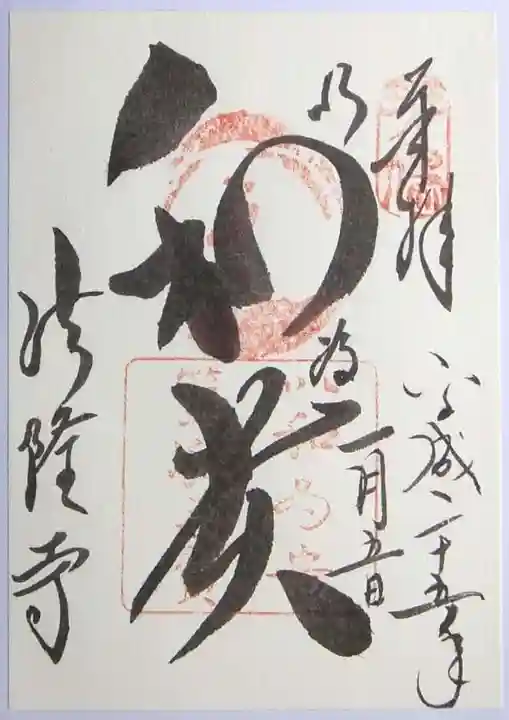 奉拝
平成二十五年
二月五日
以和為貴
法隆寺